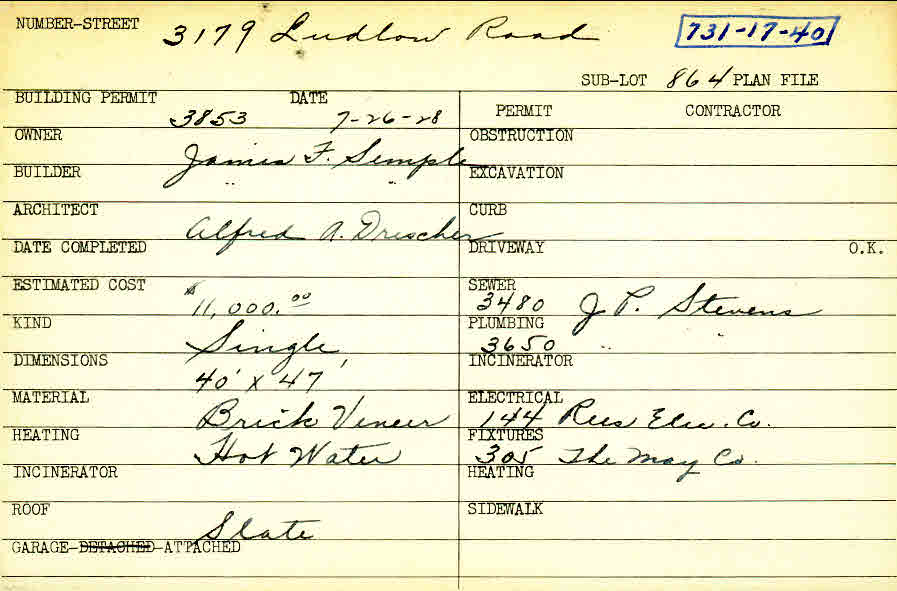 NUMBER-STREET 3179 Ludlow Road 731-17-40
SUB-LOT 864 PLAN FILE
BUILDING PERMIT 3853 DATE 7-26-28 PERMIT CONTRACTOR
OWNER James F. Semple OBSTRUCTION
BUILDER " " EXCAVATION
ARCHITECT Alfred A. Drescher CURB
DATE COMPLETED DRIVEWAY O.K.
ESTIMATED COST $11,000.00 SEWER 3480 J P. Stevens
KIND Single PLUMBING 3650 " "
DIMENSIONS 40' x 47' INCINERATOR
MATERIAL Brick Veneer ELECTRICAL 144 Rees Elec. Co.
HEATING Hot Water FIXTURES 305 The May Co.
INCINERATOR HEATING
ROOF Slate SIDEWALK
GARAGE-DETACHED-ATTACHED